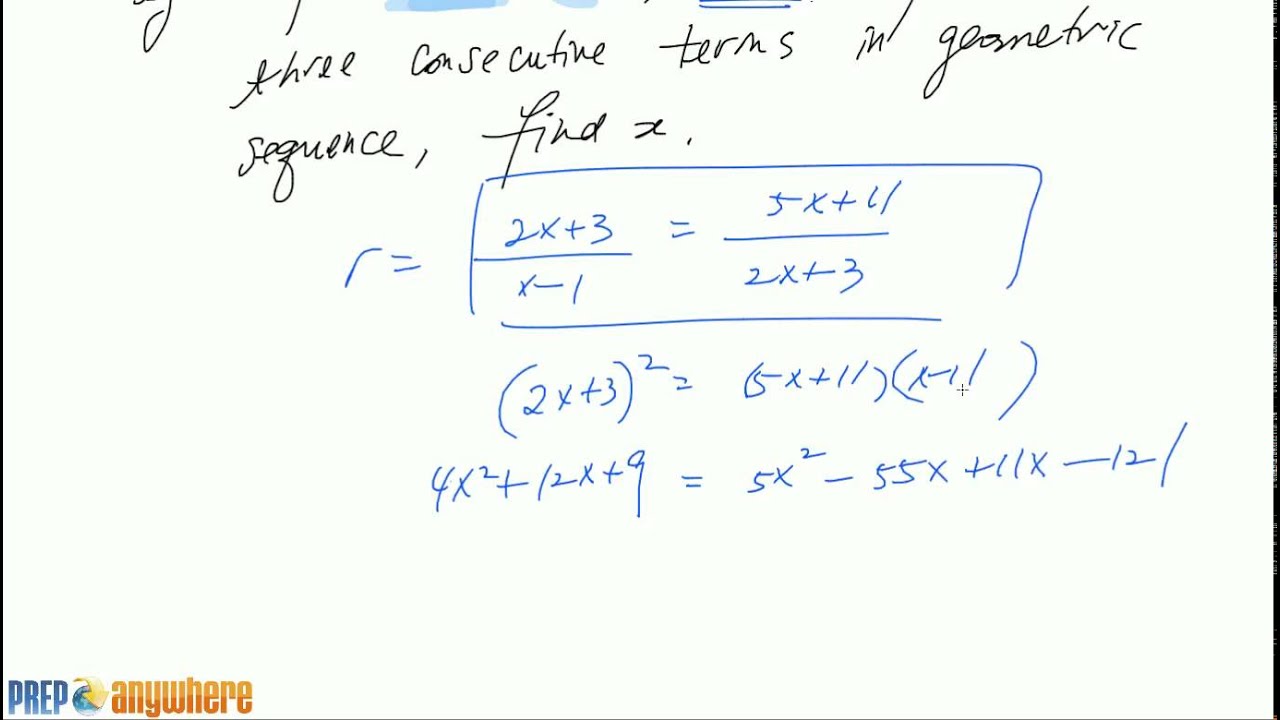 three consecutive terms in geometric
sequence, find x.
r = 2x+3 / x-1 = 5x+11 / 2x+3
(2x+3)² = (5x+11)(x-11)
4x²+12x+9 = 5x² - 55x + 11x - 121
PREP anywhere